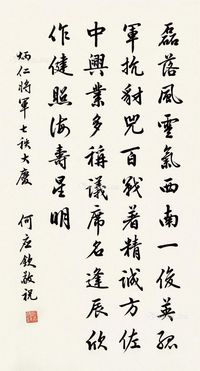 磊落風雲氣西南一俊英孤
軍抗豺兕百戰著精誠方佐
中興業多稱議席名逢辰欣
作健照海壽星明
炳仁將軍七秩大慶
何應欽敬祝